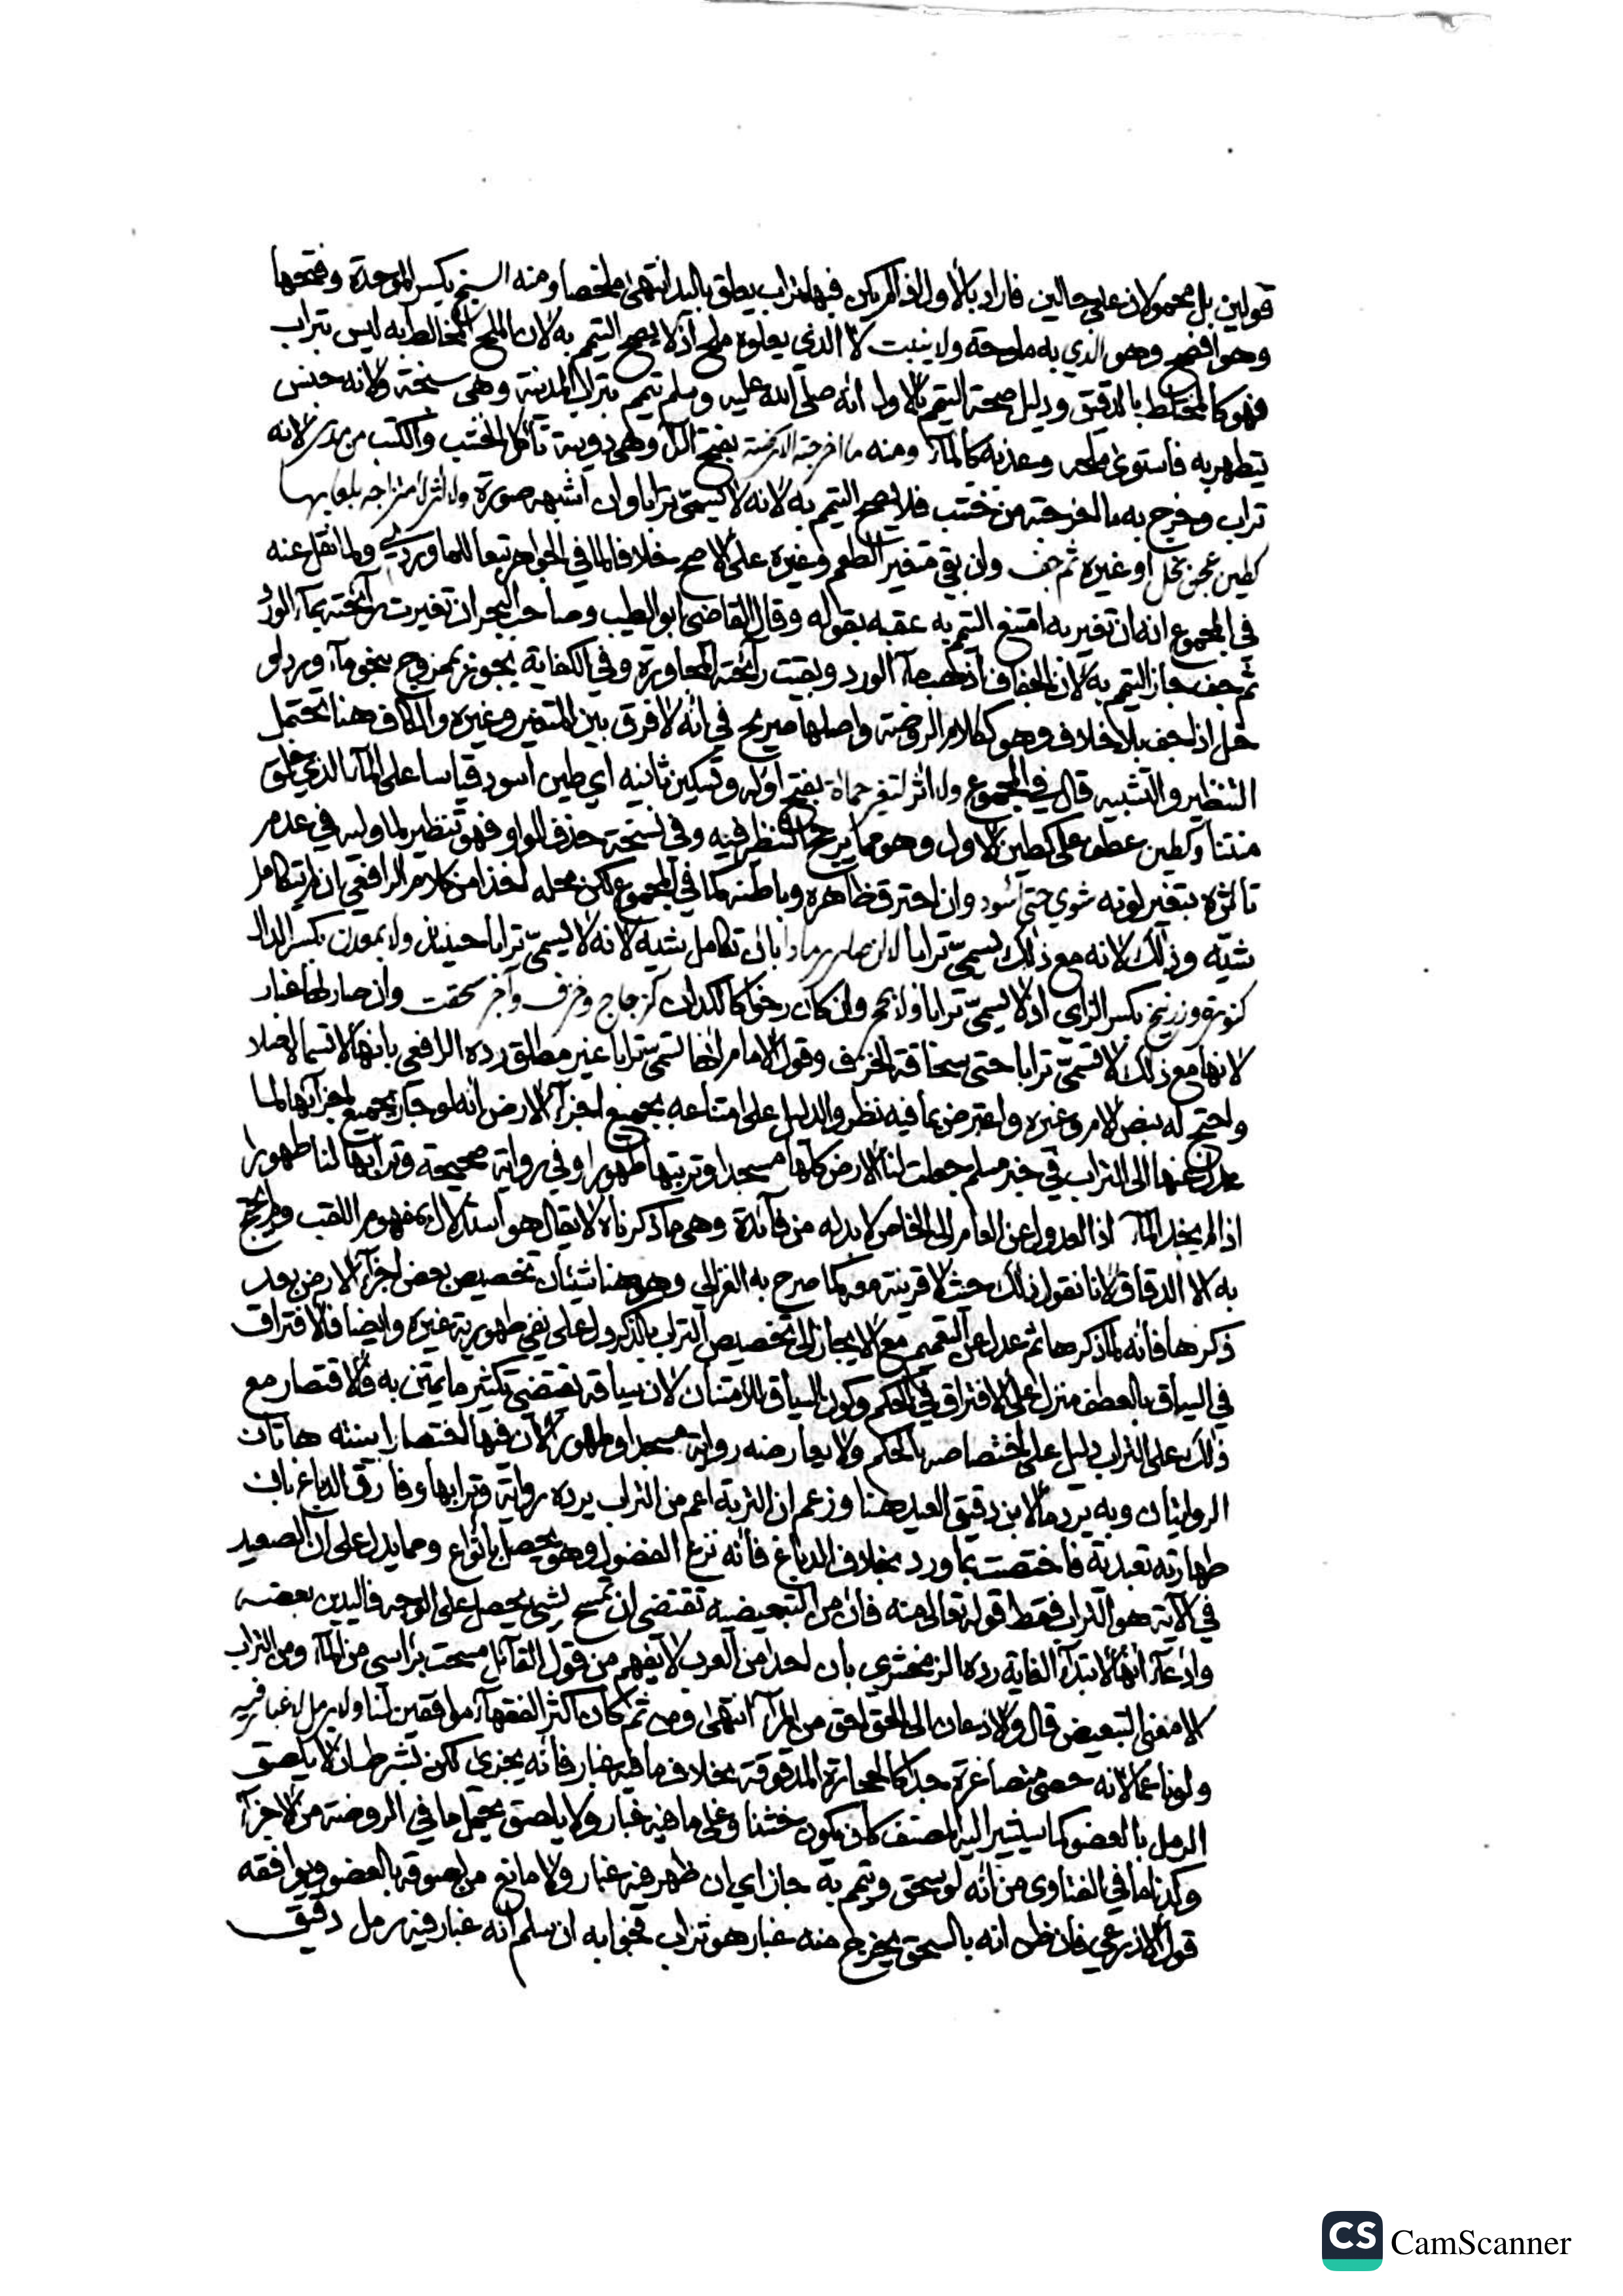 قولين بل محمولان على حالين فاراد بالاول اذا لم يكن فيها تراب يعلق باليد انتهى ملخصا ومنه السبخ بكسر الموحدة وفتحها
وهو افصح وهو الذي به ملوحة ولا ينبت لا الذي يعلوه ملح اذ لا يصح التيمم به لان الملح المخالط به ليس بتراب
فهو كالمختلط بالدقيق ودليل صحة التيمم بالاول انه صلى الله عليه وسلم تيمم بتراب المدينة وهي سبخة ولانه جنس
يتطهر به فاستوى ملحه وعذبه كالماء ومنه ما اخرجته الارضة بفتح الراء وهي دويبة تاكل الخشب والكتب من مدر لانه
تراب وخرج به ما اخرجته من خشب فلا يصح التيمم به لانه لا يسمى ترابا وان اشبهه صورة ولا اثر لامتزاجه بلعابها
كطين عجن بخل او غيره ثم جف وان بقي متغير الطعم وغيره على الاصح خلافا لما في الجواهر تبعا للماوردي ولما نقل عنه
في المجموع انه ان تغير به امتنع التيمم به عقبه بقوله وقال القاضي ابو الطيب وصاحب البحر ان تغيرت رائحته بماء الورد
ثم جف جاز التيمم به لان الجفاف اذهب ماء الورد وبقيت رائحة المجاورة وفي الكفاية يجوز بممزوج بنحو ماء ورد او
خل اذا جف بلا خلاف وهو ككلام الروضة واصلها صريح في انه لا فرق بين المتغير وغيره والكاف هنا تحتمل
التنظير والتشبيه قال في المجموع ولا اثر لتغير حماة بفتح اوله وتسكين ثانيه اي طين اسود قياسا على الماء الذي خلق
منتنا وكطين عطف على كطين الاول وهو مما يرجح التنظير فيه وفي نسخة حذف الواو فهو تنظير لما وليه في عدم
تاثره بتغير لونه شوي حتى اسود وان احترق ظاهره وباطنه كما في المجموع لكن محله اخذا من كلام الرافعي ان لم يتكامل
شيه وذلك لانه مع ذلك يسمى ترابا لا ان صار رمادا بان تكامل شيه لانه لا يسمى ترابا حينئذ ولا بمعدن بكسر الدال
كنورة وزرنيخ بكسر الزاي اذ لا يسمى ترابا ولا بحجر وان كان رخوا كالكدان كزجاج وخزف وآجر سحقت وان صار لها غبار
لانها مع ذلك لا تسمى ترابا حتى سحاقة الخزف وقول الامام انها تسمى ترابا غير مطلق رده الرافعي بانها لا تسماه اصلا
واحتج له بنص الام وغيره واعترض بما فيه نظر والدليل على امتناعه بجميع اجزاء الارض انه لو جاز بجميع اجزائها لما
عدل عنها الى التراب في خبر مسلم جعلت لنا الارض كلها مسجدا وتربتها طهورا وفي رواية صحيحة وترابها لنا طهورا
اذا لم يجد الماء اذ العدول عن العام الى الخاص لا بد له من فائدة وهي ما ذكرناه لا يقال هو استدلال بمفهوم اللقب ولم يحتج
به الا الدقاق لانا نقول ذلك حيث لا قرينة معه كما صرح به الغزالي وهو هنا شيئان تخصيص بعض اجزاء الارض بعد
ذكرها فانه لما ذكرها ثم عدل عن التعميم مع الايجاز الى تخصيص التراب بالذكر دل على نفي طهورية غيره وايضا فالافتراق
في السياق بالعطف منزل على الافتراق في الحكم وكون السياق للامتنان لان سياقه يقتضي تكثير ما يمتن به فالاقتصار مع
ذلك على التراب دليل على اختصاصه بالحكم ولا يعارضه رواية مسجدا وطهورا لان فيها اختصارا بينته هاتان
الروايتان وبه يرد ما لابن دقيق العيد هنا وزعم ان التربة اعم من التراب يرده رواية وترابها وفارق الدباغ بان
طهارته تعبدية فاختصت بما ورد بخلاف الدباغ فانه نزع الفضول وهو يحصل بانواع ومما يدل على ان الصعيد
في الآية هو التراب فقط قوله تعالى منه فان من التبعيضية تقتضي ان يمسح بشيء يحصل على الوجه واليدين بعضه
وادعاء انها لابتداء الغاية رده الزمخشري بان احدا من العرب لا يفهم من قول القائل مسحت براسي من الماء ومن التراب
الا معنى التبعيض قال والاذعان الى الحق احق من المراء انتهى ومن ثم كان اكثر الفقهاء موافقين لنا ولا برمل لا غبار فيه
ولو ناعما لانه حصى متصاغرة جدا كالحجارة المدقوقة بخلاف ما فيه غبار فانه يجزي لكن بشرط ان لا يلصق
الرمل بالعضو كما سيشير اليه المصنف كان يكون خشنا وعلى ما فيه غبار ولا يلصق يحمل ما في الروضة من الاجزاء
وكذا ما في الفتاوى من انه لو سحق وتيمم به جاز اي ان ظهر فيه غبار ولا مانع من لصوقه بالعضو ويوافقه
قول الاذرعي فان ظن انه بالسحق يخرج منه غبار هو تراب فجوابه ان سلم انه غبار فيه رمل دقيق
CS CamScanner